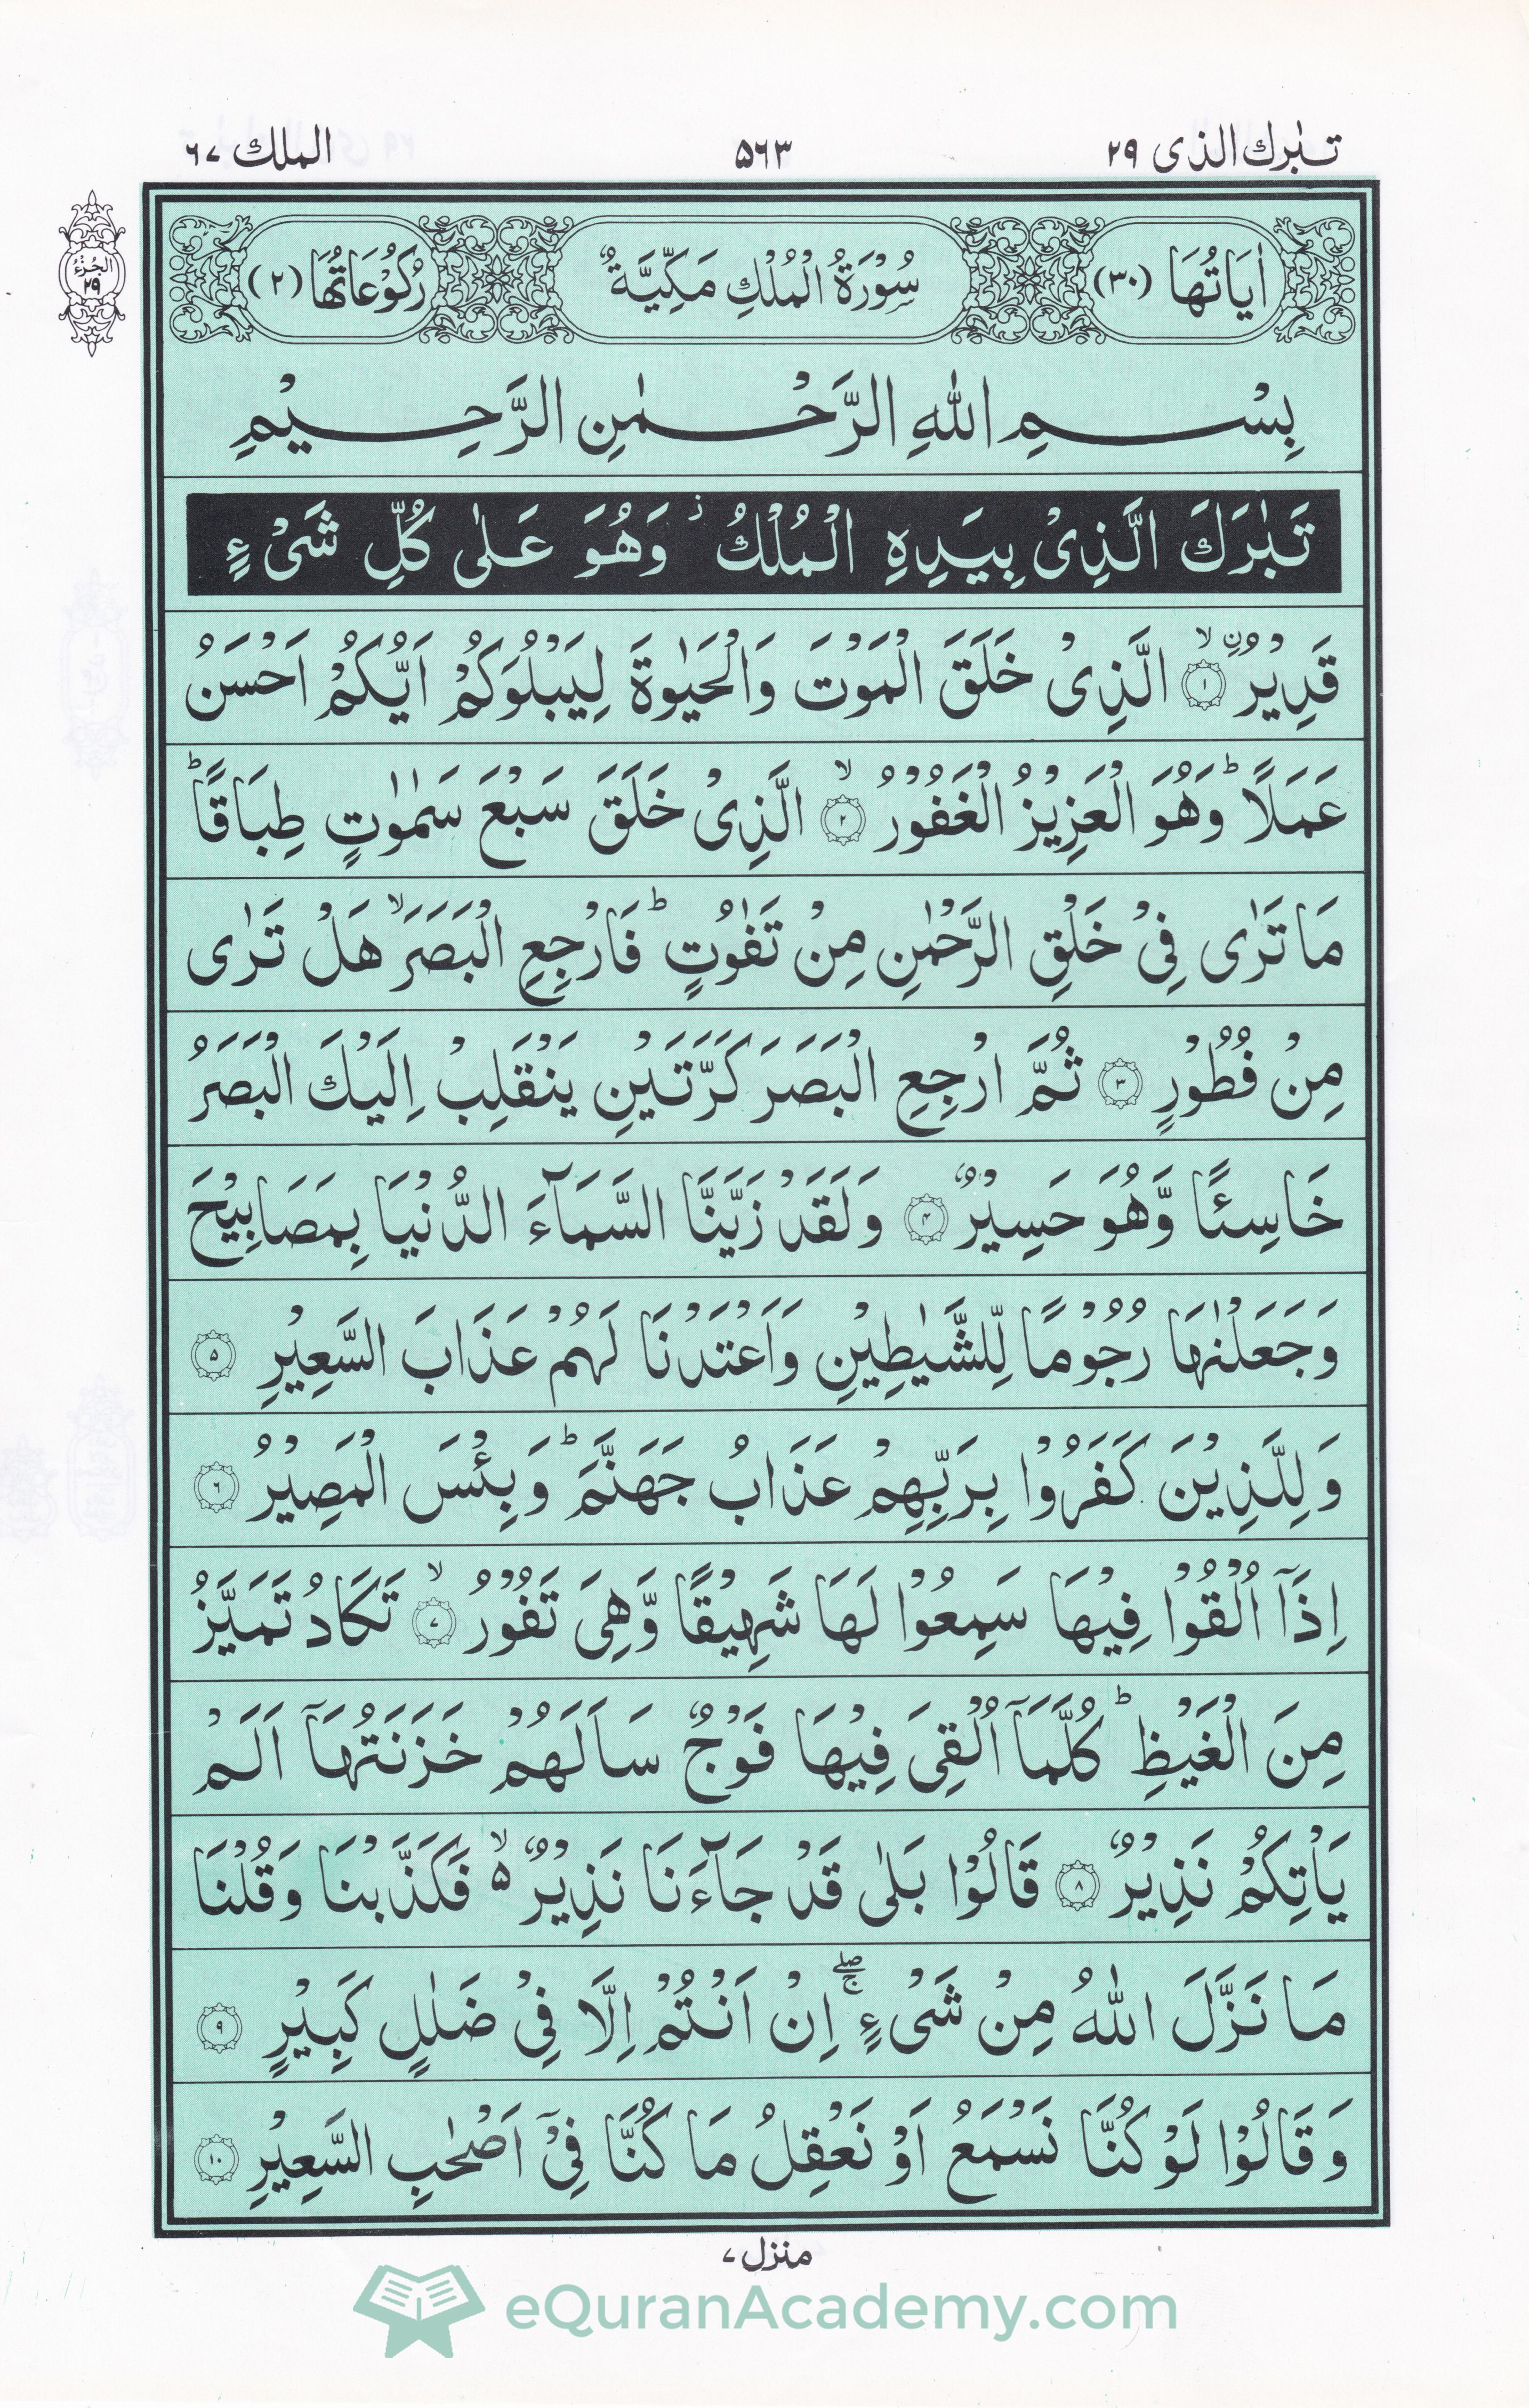 تبٰرك الذى ٢٩
٥٦٣
الملك ٦٧
الجزء ٢٩
اٰيَاتُهَا (٣٠)
سُوْرَةُ الْمُلْكِ مَكِّيَّةٌ
رُكُوْعَاتُهَا (٢)
بِسْمِ اللّٰهِ الرَّحْمٰنِ الرَّحِيْمِ
تَبٰرَكَ الَّذِىْ بِيَدِهِ الْمُلْكُ ز وَهُوَ عَلٰى كُلِّ شَىْءٍ
قَدِيْرُ ۨ ۙ ﴿١﴾ الَّذِىْ خَلَقَ الْمَوْتَ وَالْحَيٰوةَ لِيَبْلُوَكُمْ اَيُّكُمْ اَحْسَنُ
عَمَلًا ؕ وَهُوَ الْعَزِيْزُ الْغَفُوْرُ ۙ ﴿٢﴾ الَّذِىْ خَلَقَ سَبْعَ سَمٰوٰتٍ طِبَاقًا ؕ
مَا تَرٰى فِىْ خَلْقِ الرَّحْمٰنِ مِنْ تَفٰوُتٍ ؕ فَارْجِعِ الْبَصَرَ ۙ هَلْ تَرٰى
مِنْ فُطُوْرٍ ﴿٣﴾ ثُمَّ ارْجِعِ الْبَصَرَ كَرَّتَيْنِ يَنْقَلِبْ اِلَيْكَ الْبَصَرُ
خَاسِئًا وَّهُوَ حَسِيْرٌ ﴿٤﴾ وَلَقَدْ زَيَّنَّا السَّمَآءَ الدُّنْيَا بِمَصَابِيْحَ
وَجَعَلْنٰهَا رُجُوْمًا لِّلشَّيٰطِيْنِ وَاَعْتَدْنَا لَهُمْ عَذَابَ السَّعِيْرِ ﴿٥﴾
وَلِلَّذِيْنَ كَفَرُوْا بِرَبِّهِمْ عَذَابُ جَهَنَّمَ ؕ وَبِئْسَ الْمَصِيْرُ ﴿٦﴾
اِذَآ اُلْقُوْا فِيْهَا سَمِعُوْا لَهَا شَهِيْقًا وَّهِىَ تَفُوْرُ ۙ ﴿٧﴾ تَكَادُ تَمَيَّزُ
مِنَ الْغَيْظِ ؕ كُلَّمَآ اُلْقِىَ فِيْهَا فَوْجٌ سَاَلَهُمْ خَزَنَتُهَآ اَلَمْ
يَاْتِكُمْ نَذِيْرٌ ﴿٨﴾ قَالُوْا بَلٰى قَدْ جَآءَنَا نَذِيْرٌ ۵ ۙ فَكَذَّبْنَا وَقُلْنَا
مَا نَزَّلَ اللّٰهُ مِنْ شَىْءٍ ۚ ۖ اِنْ اَنْتُمْ اِلَّا فِىْ ضَلٰلٍ كَبِيْرٍ ﴿٩﴾
وَقَالُوْا لَوْ كُنَّا نَسْمَعُ اَوْ نَعْقِلُ مَا كُنَّا فِىْٓ اَصْحٰبِ السَّعِيْرِ ﴿١٠﴾
منزل ٧
eQuranAcademy.com